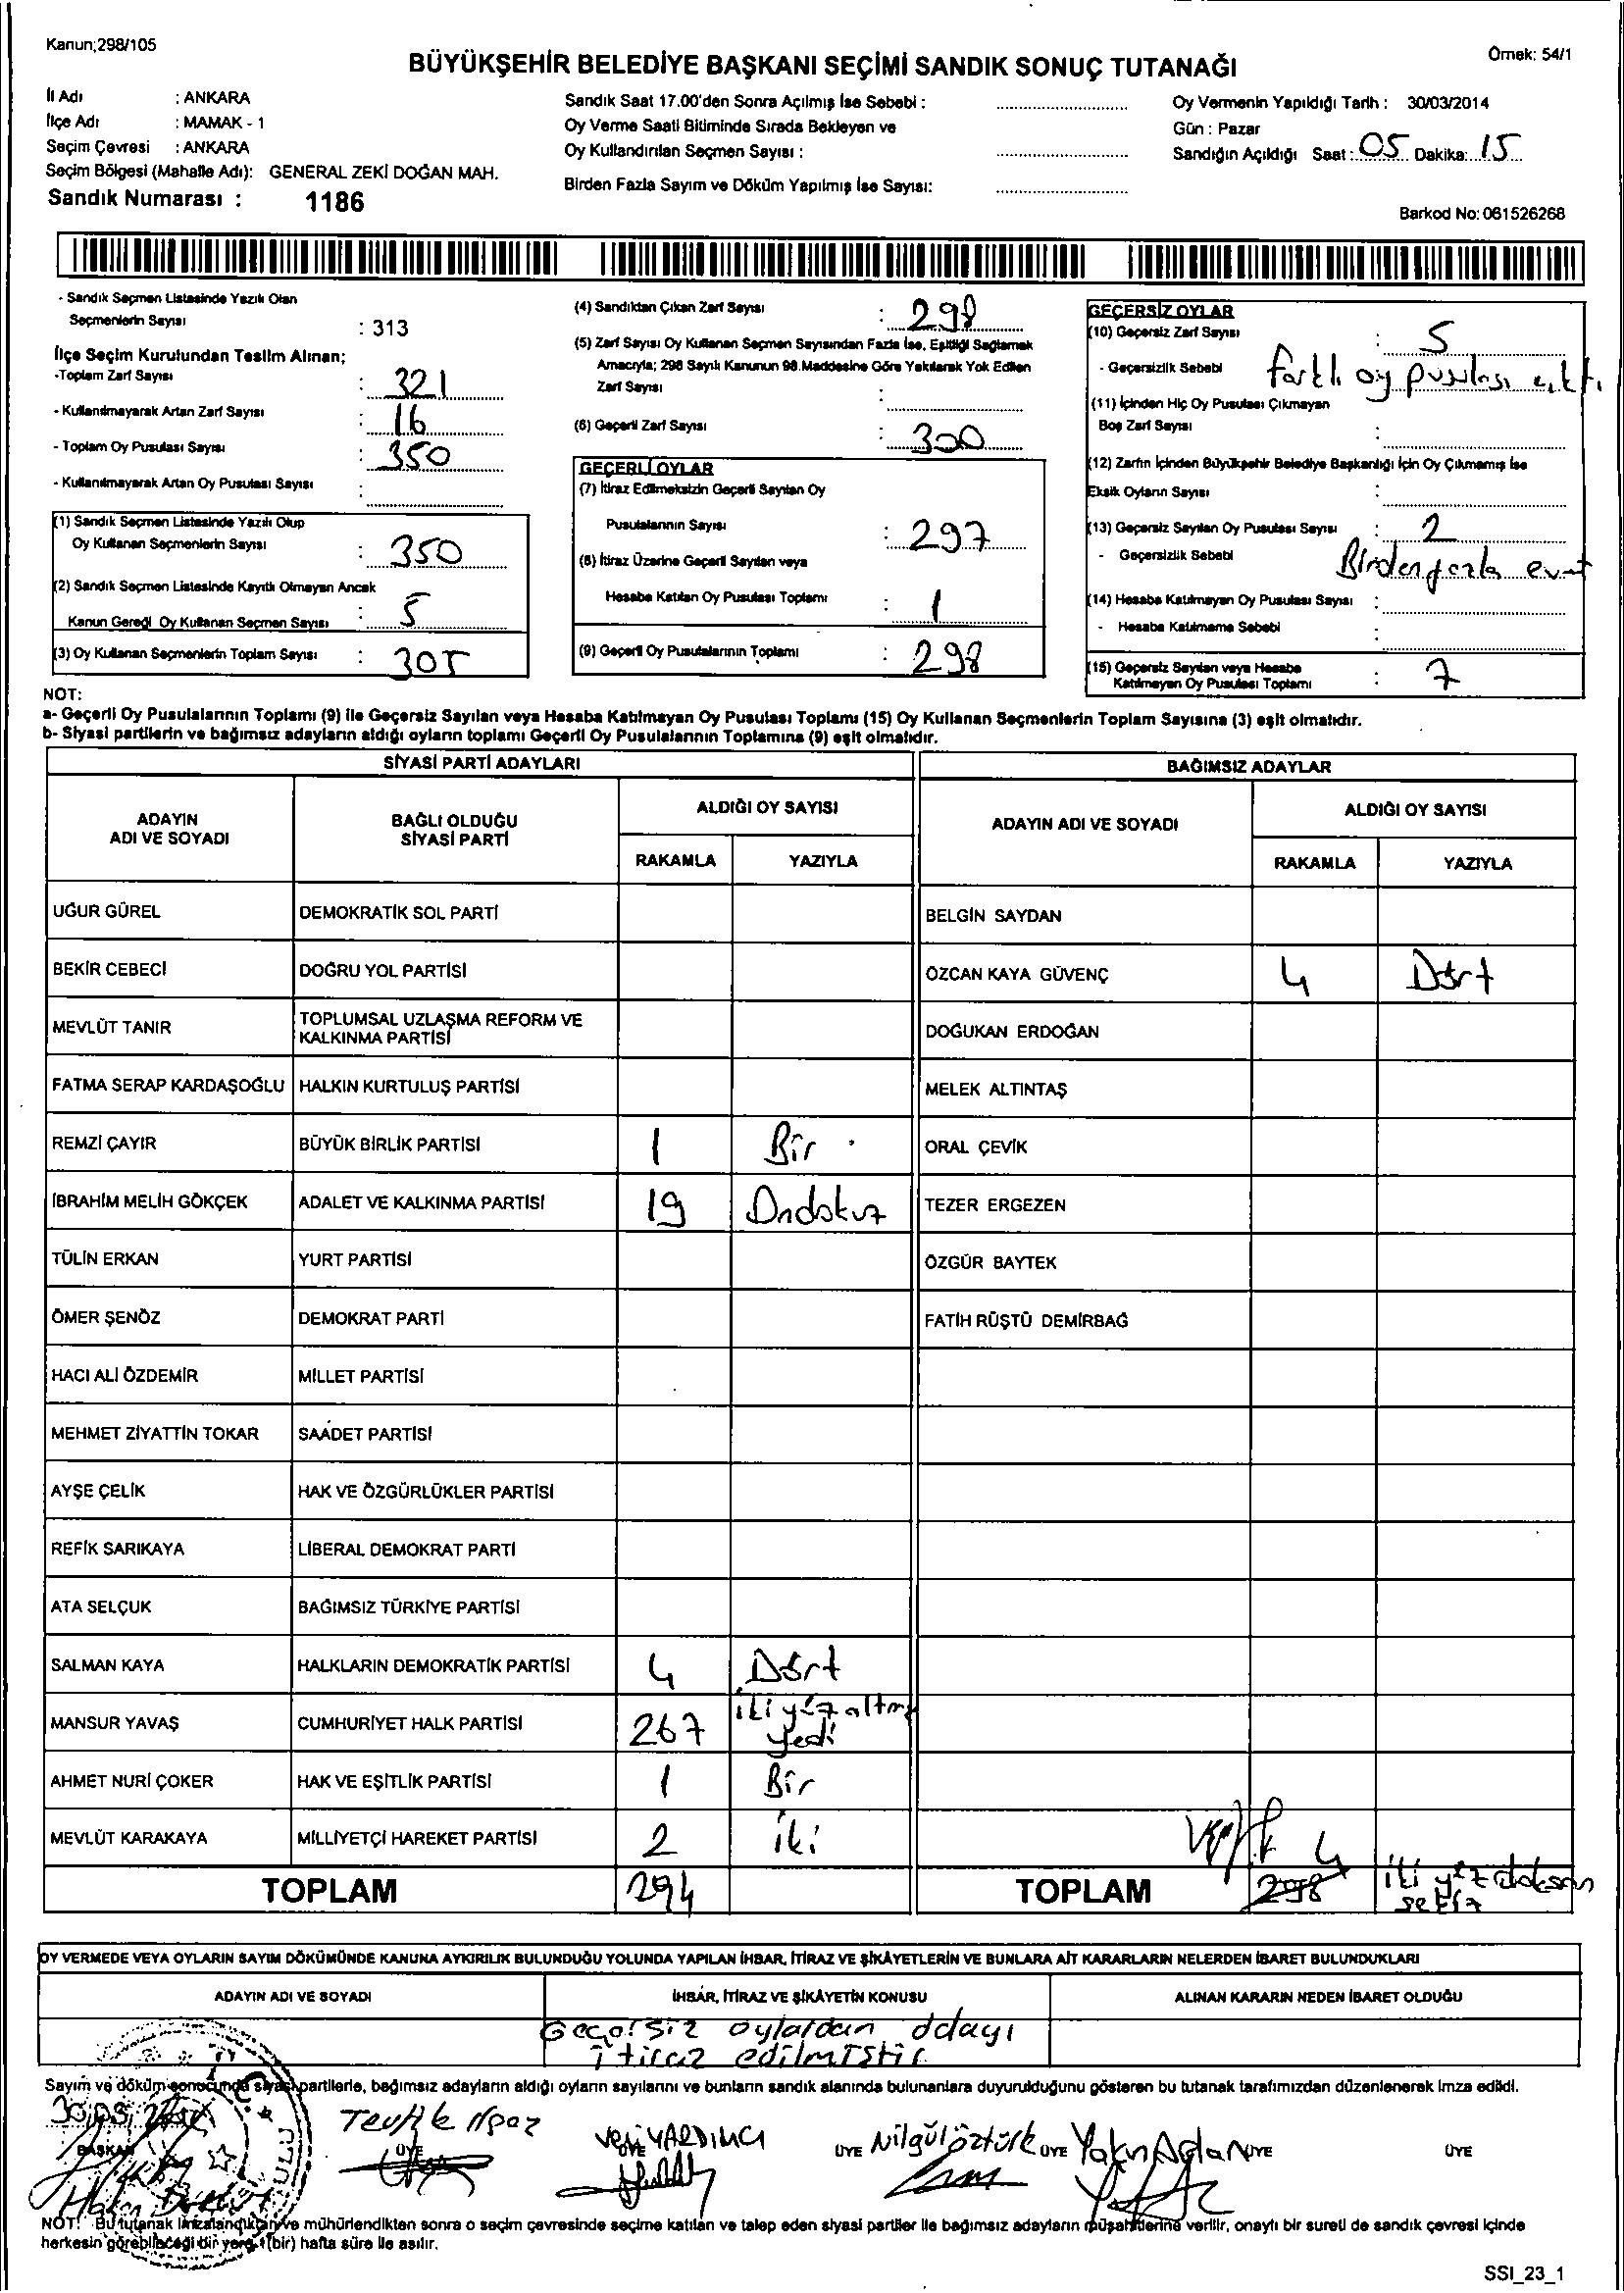 Kanun;298/105
Örnek: 54/1
BÜYÜKŞEHİR BELEDİYE BAŞKANI SEÇİMİ SANDIK SONUÇ TUTANAĞI
İl Adı : ANKARA
İlçe Adı : MAMAK - 1
Seçim Çevresi : ANKARA
Seçim Bölgesi (Mahalle Adı): GENERAL ZEKİ DOĞAN MAH.
Sandık Numarası : 1186
Sandık Saat 17.00'den Sonra Açılmış İse Sebebi :
Oy Verme Saati Bitiminde Sırada Bekleyen ve
Oy Kullandırılan Seçmen Sayısı :
Birden Fazla Sayım ve Döküm Yapılmış İse Sayısı:
Oy Vermenin Yapıldığı Tarih : 30/03/2014
Gün : Pazar
Sandığın Açıldığı Saat : 05 Dakika: 15
Barkod No: 061526268
- Sandık Seçmen Listesinde Yazılı Olan
Seçmenlerin Sayısı : 313
İlçe Seçim Kurulundan Teslim Alınan;
-Toplam Zarf Sayısı : 321
- Kullanılmayarak Artan Zarf Sayısı : 16
- Toplam Oy Pusulası Sayısı : 350
- Kullanılmayarak Artan Oy Pusulası Sayısı :
(1) Sandık Seçmen Listesinde Yazılı Olup
Oy Kullanan Seçmenlerin Sayısı : 350
(2) Sandık Seçmen Listesinde Kayıtlı Olmayan Ancak
Kanun Gereği Oy Kullanan Seçmen Sayısı : 5
(3) Oy Kullanan Seçmenlerin Toplam Sayısı : 305
(4) Sandıktan Çıkan Zarf Sayısı : 298
(5) Zarf Sayısı Oy Kullanan Seçmen Sayısından Fazla İse, Eşitliği Sağlamak
Amacıyla; 298 Sayılı Kanunun 98.Maddesine Göre Yakılarak Yok Edilen
Zarf Sayısı :
(6) Geçerli Zarf Sayısı : 300
GEÇERLİ OYLAR
(7) İtiraz Edilmeksizin Geçerli Sayılan Oy
Pusulalarının Sayısı : 297
(8) İtiraz Üzerine Geçerli Sayılan veya
Hesaba Katılan Oy Pusulası Toplamı : 1
(9) Geçerli Oy Pusulalarının Toplamı : 298
GEÇERSİZ OYLAR
(10) Geçersiz Zarf Sayısı : 5
- Geçersizlik Sebebi farklı oy pusulası çıktı
(11) İçinden Hiç Oy Pusulası Çıkmayan
Boş Zarf Sayısı :
(12) Zarfın İçinden Büyükşehir Belediye Başkanlığı İçin Oy Çıkmamış İse
Eksik Oyların Sayısı :
(13) Geçersiz Sayılan Oy Pusulası Sayısı : 2
- Geçersizlik Sebebi Birden fazla evet
(14) Hesaba Katılmayan Oy Pusulası Sayısı :
- Hesaba Katılmama Sebebi :
(15) Geçersiz Sayılan veya Hesaba
Katılmayan Oy Pusulası Toplamı : 7
NOT:
a- Geçerli Oy Pusulalarının Toplamı (9) ile Geçersiz Sayılan veya Hesaba Katılmayan Oy Pusulası Toplamı (15) Oy Kullanan Seçmenlerin Toplam Sayısına (3) eşit olmalıdır.
b- Siyasi partilerin ve bağımsız adayların aldığı oyların toplamı Geçerli Oy Pusulalarının Toplamına (9) eşit olmalıdır.
SİYASİ PARTİ ADAYLARI
BAĞIMSIZ ADAYLAR
ADAYIN ADI VE SOYADI
BAĞLI OLDUĞU SİYASİ PARTİ
ALDIĞI OY SAYISI
RAKAMLA YAZIYLA
ADAYIN ADI VE SOYADI
ALDIĞI OY SAYISI
RAKAMLA YAZIYLA
UĞUR GÜREL DEMOKRATİK SOL PARTİ BELGİN SAYDAN
BEKİR CEBECİ DOĞRU YOL PARTİSİ ÖZCAN KAYA GÜVENÇ 4 Dört
MEVLÜT TANIR TOPLUMSAL UZLAŞMA REFORM VE KALKINMA PARTİSİ DOĞUKAN ERDOĞAN
FATMA SERAP KARDAŞOĞLU HALKIN KURTULUŞ PARTİSİ MELEK ALTINTAŞ
REMZİ ÇAYIR BÜYÜK BİRLİK PARTİSİ 1 Bir ORAL ÇEVİK
İBRAHİM MELİH GÖKÇEK ADALET VE KALKINMA PARTİSİ 19 Ondokuz TEZER ERGEZEN
TÜLİN ERKAN YURT PARTİSİ ÖZGÜR BAYTEK
ÖMER ŞENÖZ DEMOKRAT PARTİ FATİH RÜŞTÜ DEMİRBAĞ
HACI ALİ ÖZDEMİR MİLLET PARTİSİ
MEHMET ZİYATTİN TOKAR SAADET PARTİSİ
AYŞE ÇELİK HAK VE ÖZGÜRLÜKLER PARTİSİ
REFİK SARIKAYA LİBERAL DEMOKRAT PARTİ
ATA SELÇUK BAĞIMSIZ TÜRKİYE PARTİSİ
SALMAN KAYA HALKLARIN DEMOKRATİK PARTİSİ 4 Dört
MANSUR YAVAŞ CUMHURİYET HALK PARTİSİ 267 iki yüz altmış yedi
AHMET NURİ ÇOKER HAK VE EŞİTLİK PARTİSİ 1 Bir
MEVLÜT KARAKAYA MİLLİYETÇİ HAREKET PARTİSİ 2 iki
TOPLAM 294 TOPLAM 298 4 iki yüz doksan sekiz
OY VERMEDE VEYA OYLARIN SAYIM DÖKÜMÜNDE KANUNA AYKIRILIK BULUNDUĞU YOLUNDA YAPILAN İHBAR, İTİRAZ VE ŞİKÂYETLERİN VE BUNLARA AİT KARARLARIN NELERDEN İBARET BULUNDUKLARI
ADAYIN ADI VE SOYADI İHBAR, İTİRAZ VE ŞİKÂYETİN KONUSU ALINAN KARARIN NEDEN İBARET OLDUĞU
Geçersiz oylardan dolayı
itiraz edilmiştir
Sayım ve döküm sonucunda siyasi partilerle, bağımsız adayların aldığı oyların sayılarını ve bunların sandık alanında bulunanlara duyurulduğunu gösteren bu tutanak tarafımızdan düzenlenerek imza edildi.
Tevfik Ilgaz Veli YARDIMCI Nilgül Öztürk Yakın Aslan
BAŞKAN ÜYE ÜYE ÜYE ÜYE ÜYE ÜYE
NOT: Bu tutanak imzalandıktan ve mühürlendikten sonra o seçim çevresinde seçime katılan ve talep eden siyasi partiler ile bağımsız adayların müşahitlerine verilir, onaylı bir sureti de sandık çevresi içinde
herkesin görebileceği bir yere 1 (bir) hafta süre ile asılır.
SSI_23_1